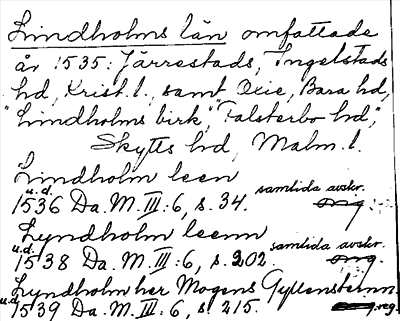 Lindholms län omfattade
år 1535: Järrestads, Ingelstads
hd, Krist. l., samt Oxie, Bara hd,
"Lindholms birk," "Falsterbo hd",
Skytts hd, Malm. l.
Lindholm leen
u.d. samtida avskr.
1536 Da. M. III: 6, s. 34. orig.
Lyndholm leenn
u.d. samtida avskr.
1538 Da. M. III: 6, s. 202. orig.
Lyndholm her Mogens Gyllensternn
u.d. 1539 Da. M. III: 6, s. 215. reg.